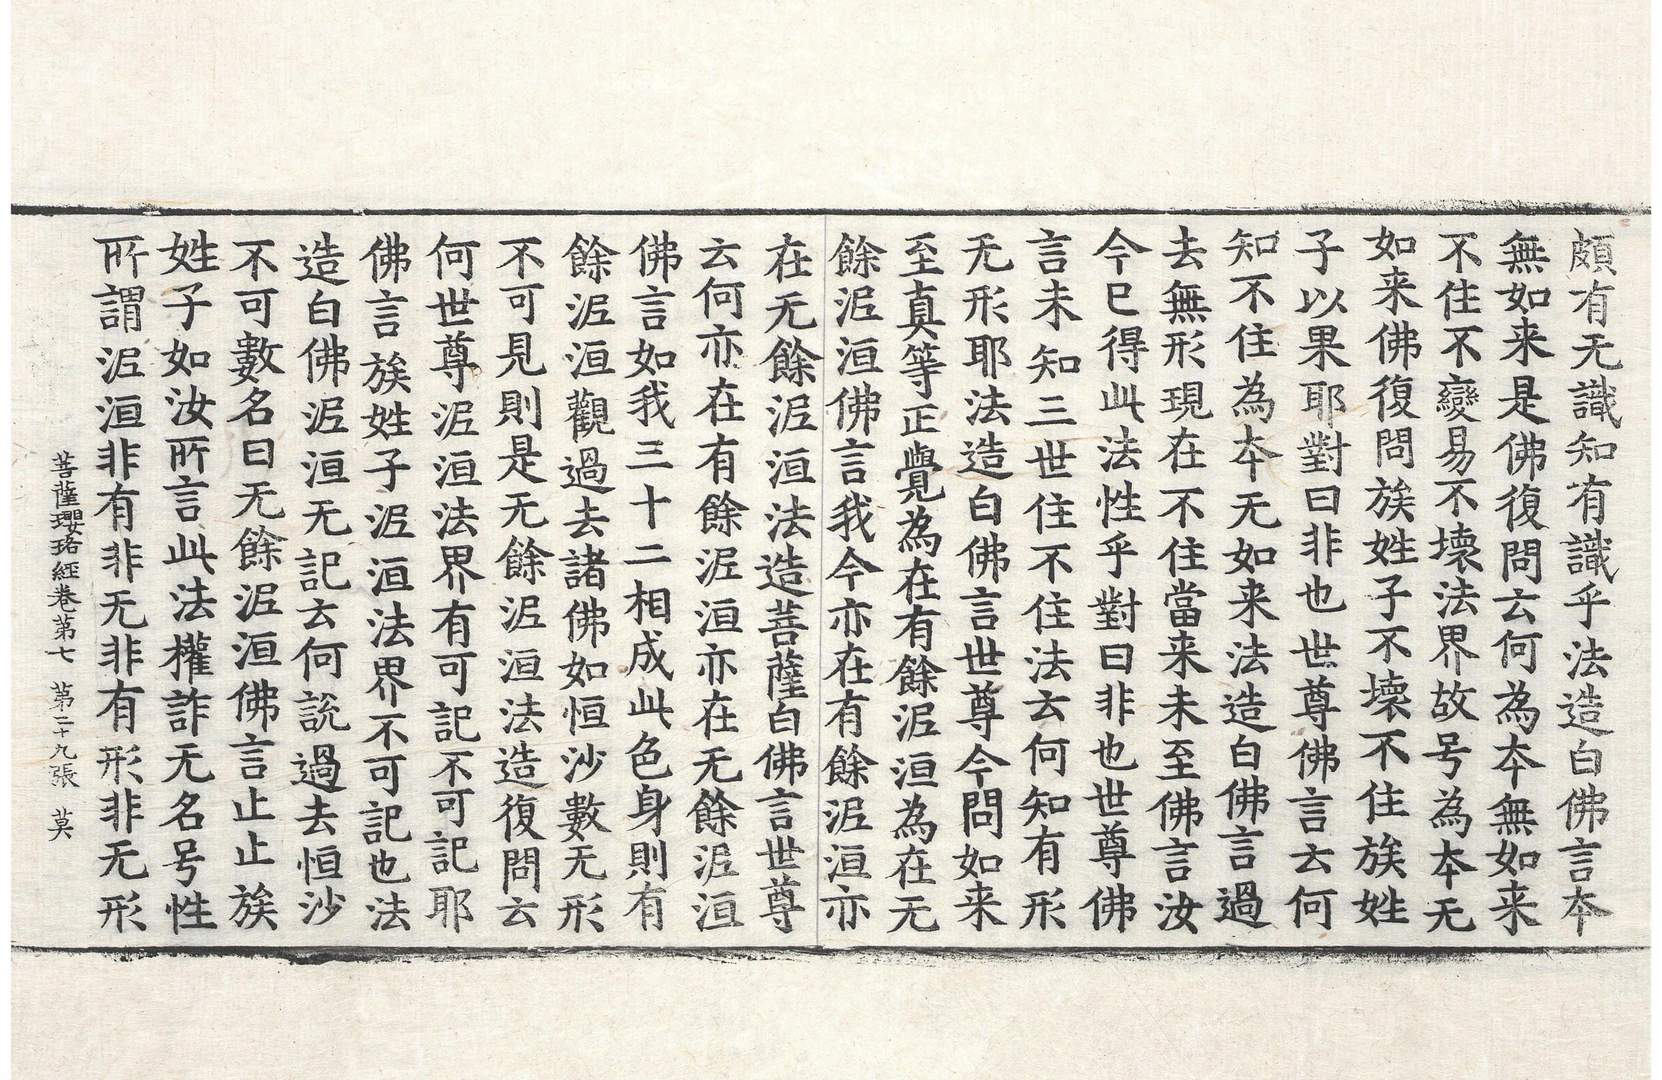 頗有无識知有識乎法造白佛言本
無如来是佛復問云何為本無如来
不住不變易不壞法界故号為本无
如来佛復問族姓子不壞不住族姓
子以果耶對曰非也世尊佛言云何
知不住為本无如来法造白佛言過
去無形現在不住當来未至佛言汝
今已得此法性乎對曰非也世尊佛
言未知三世住不住法云何知有形
无形耶法造白佛言世尊今問如来
至真等正覺為在有餘泥洹為在无
餘泥洹佛言我今亦在有餘泥洹亦
在无餘泥洹法造菩薩白佛言世尊
云何亦在有餘泥洹亦在无餘泥洹
佛言如我三十二相成此色身則有
餘泥洹觀過去諸佛如恒沙數无形
不可見則是无餘泥洹法造復問云
何世尊泥洹法界有可記不可記耶
佛言族姓子泥洹法界不可記也法
造白佛泥洹无記云何說過去恒沙
不可數名曰无餘泥洹佛言止止族
姓子如汝所言此法權詐无名号性
所謂泥洹非有非无非有形非无形
菩薩瓔珞経卷第七 第二十九張 莫